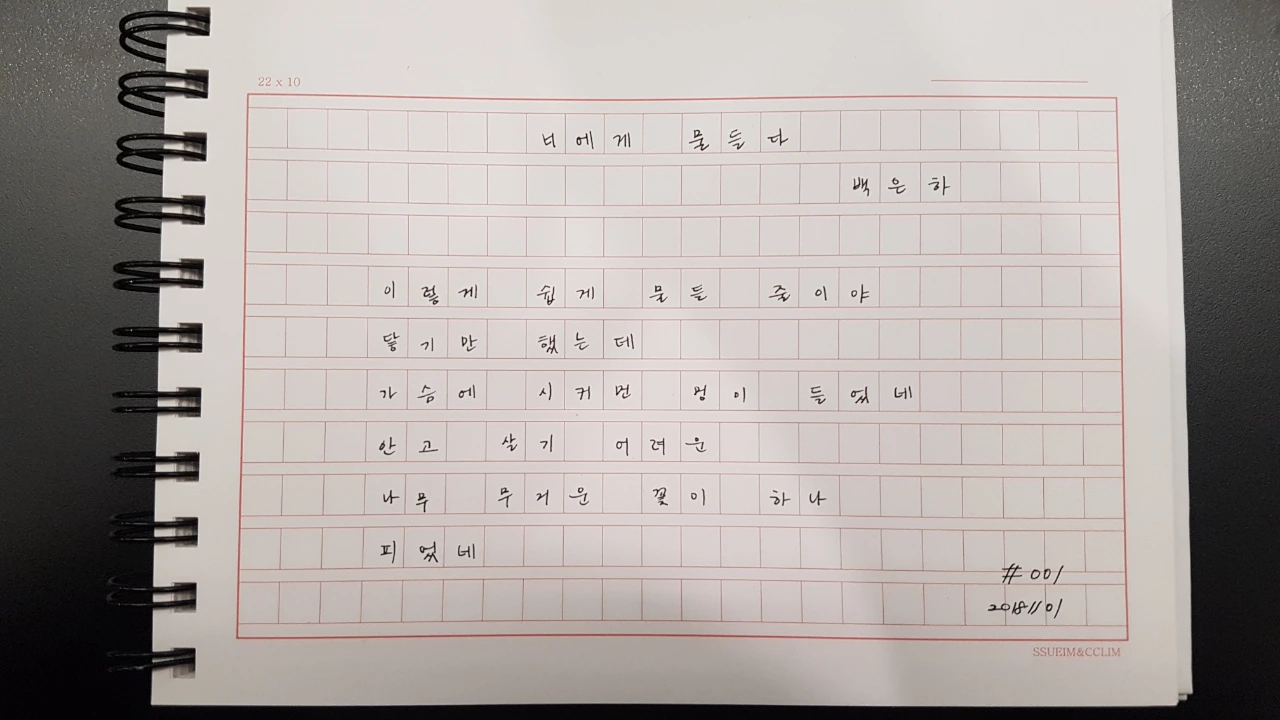 22 x 10
너에게 물들다
백은하
이렇게 쉽게 물들 줄이야
닿기만 했는데
가슴에 시커먼 멍이 들었네
안고 살기 어려운
나무 무거운 꽃이 하나
피었네
#001
20181101
SSUEIM&CCLIM